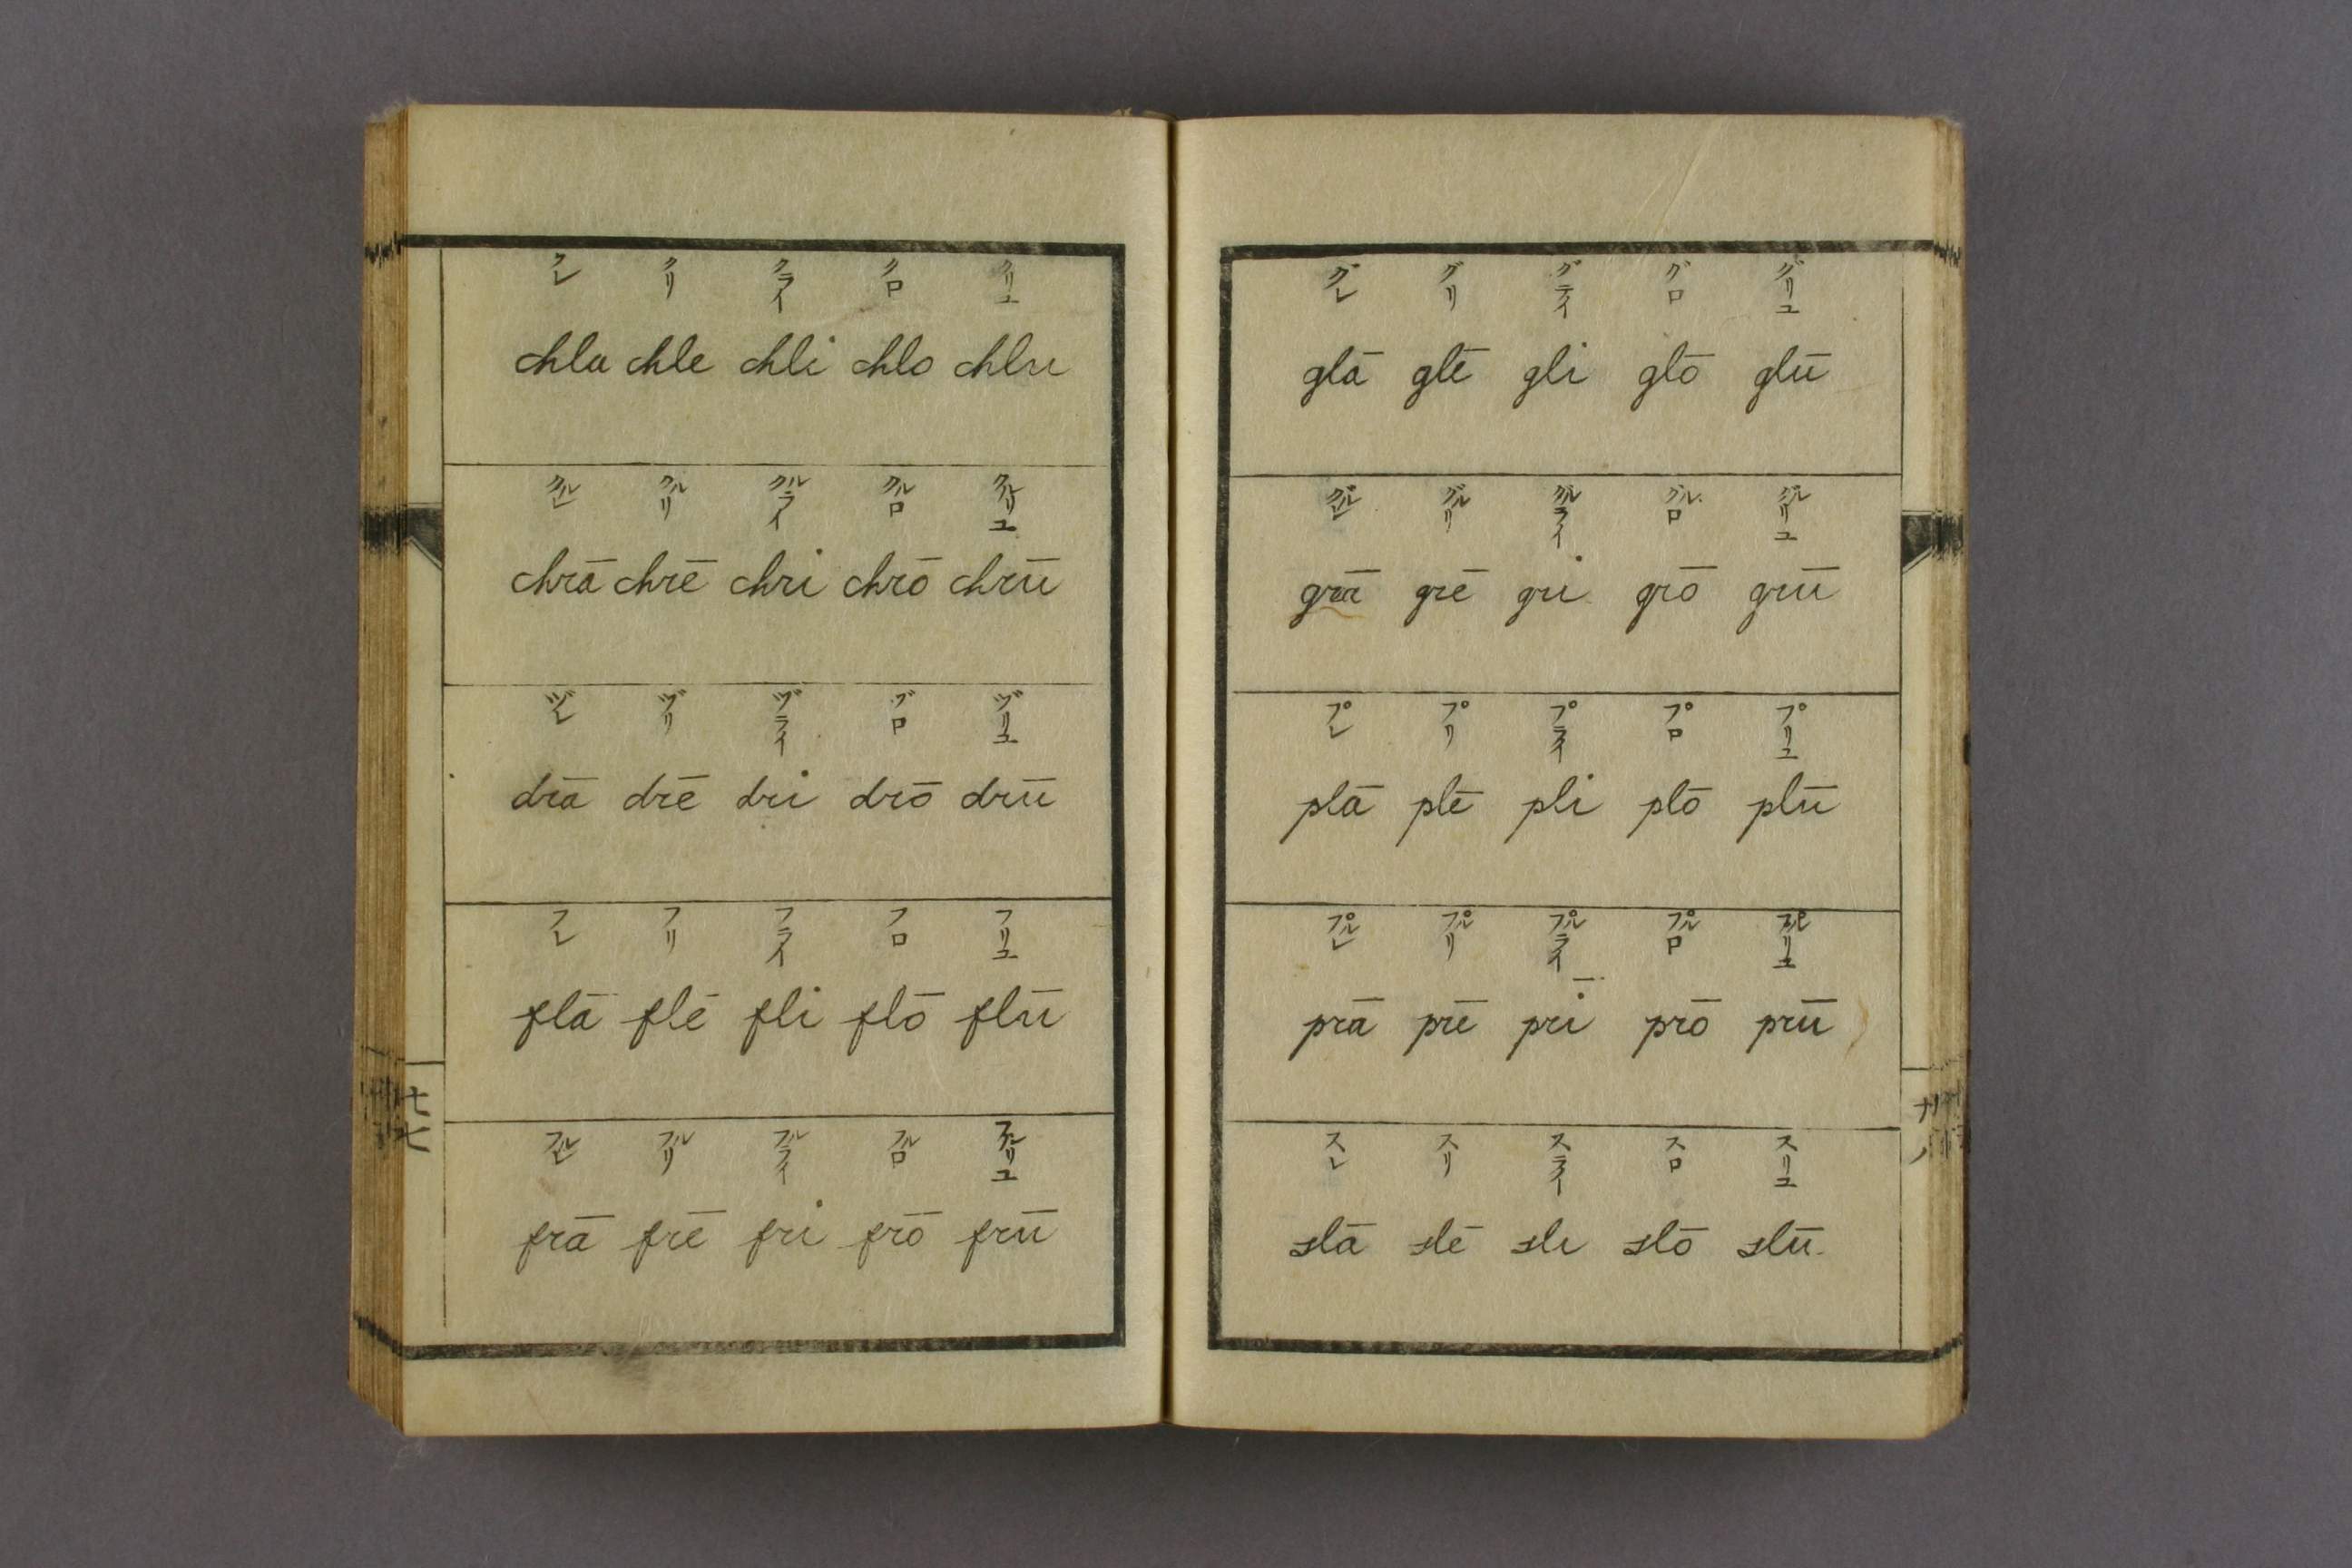 クレ クリ クライ クロ クリュ
chla chle chli chlo chlu
クルレ クルリ クルライ クルロ クルリュ
chrā chrē chri chrō chrū
ヅレ ヅリ ヅライ ヅロ ヅリュ
drā drē dri drō drū
フレ フリ フライ フロ フリュ
flā flē fli flō flū
フルレ フルリ フルライ フルロ フルリュ
frā frē fri frō frū
七七
グレ グリ グライ グロ グリュ
glā glē gli glō glū
グルレ グルリ グルライ グルロ グルリュ
grā grē gri grō grū
プレ プリ プライ プロ プリュ
plā plē pli plō plū
プルレ プルリ プルライ プルロ プルリュ
prā prē pri prō prū
スレ スリ スライ スロ スリュ
slā slē sli slō slū